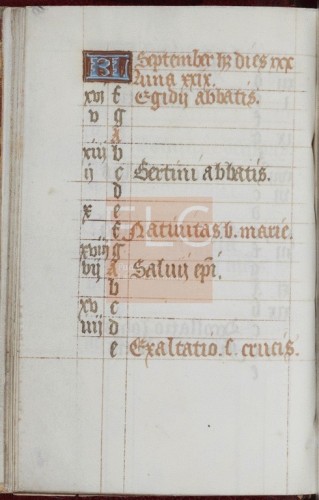 KL September hʒ dies xxx
luna xxix.
xvj f Egidij abbatis.
v g
A
xiii b
ij c Bertini abbatis.
d
x e
f Natiuitas b. marie.
xviij g
vij A Saluij epi.
b
xv c
iiij d
e Exaltatio. s. crucis.